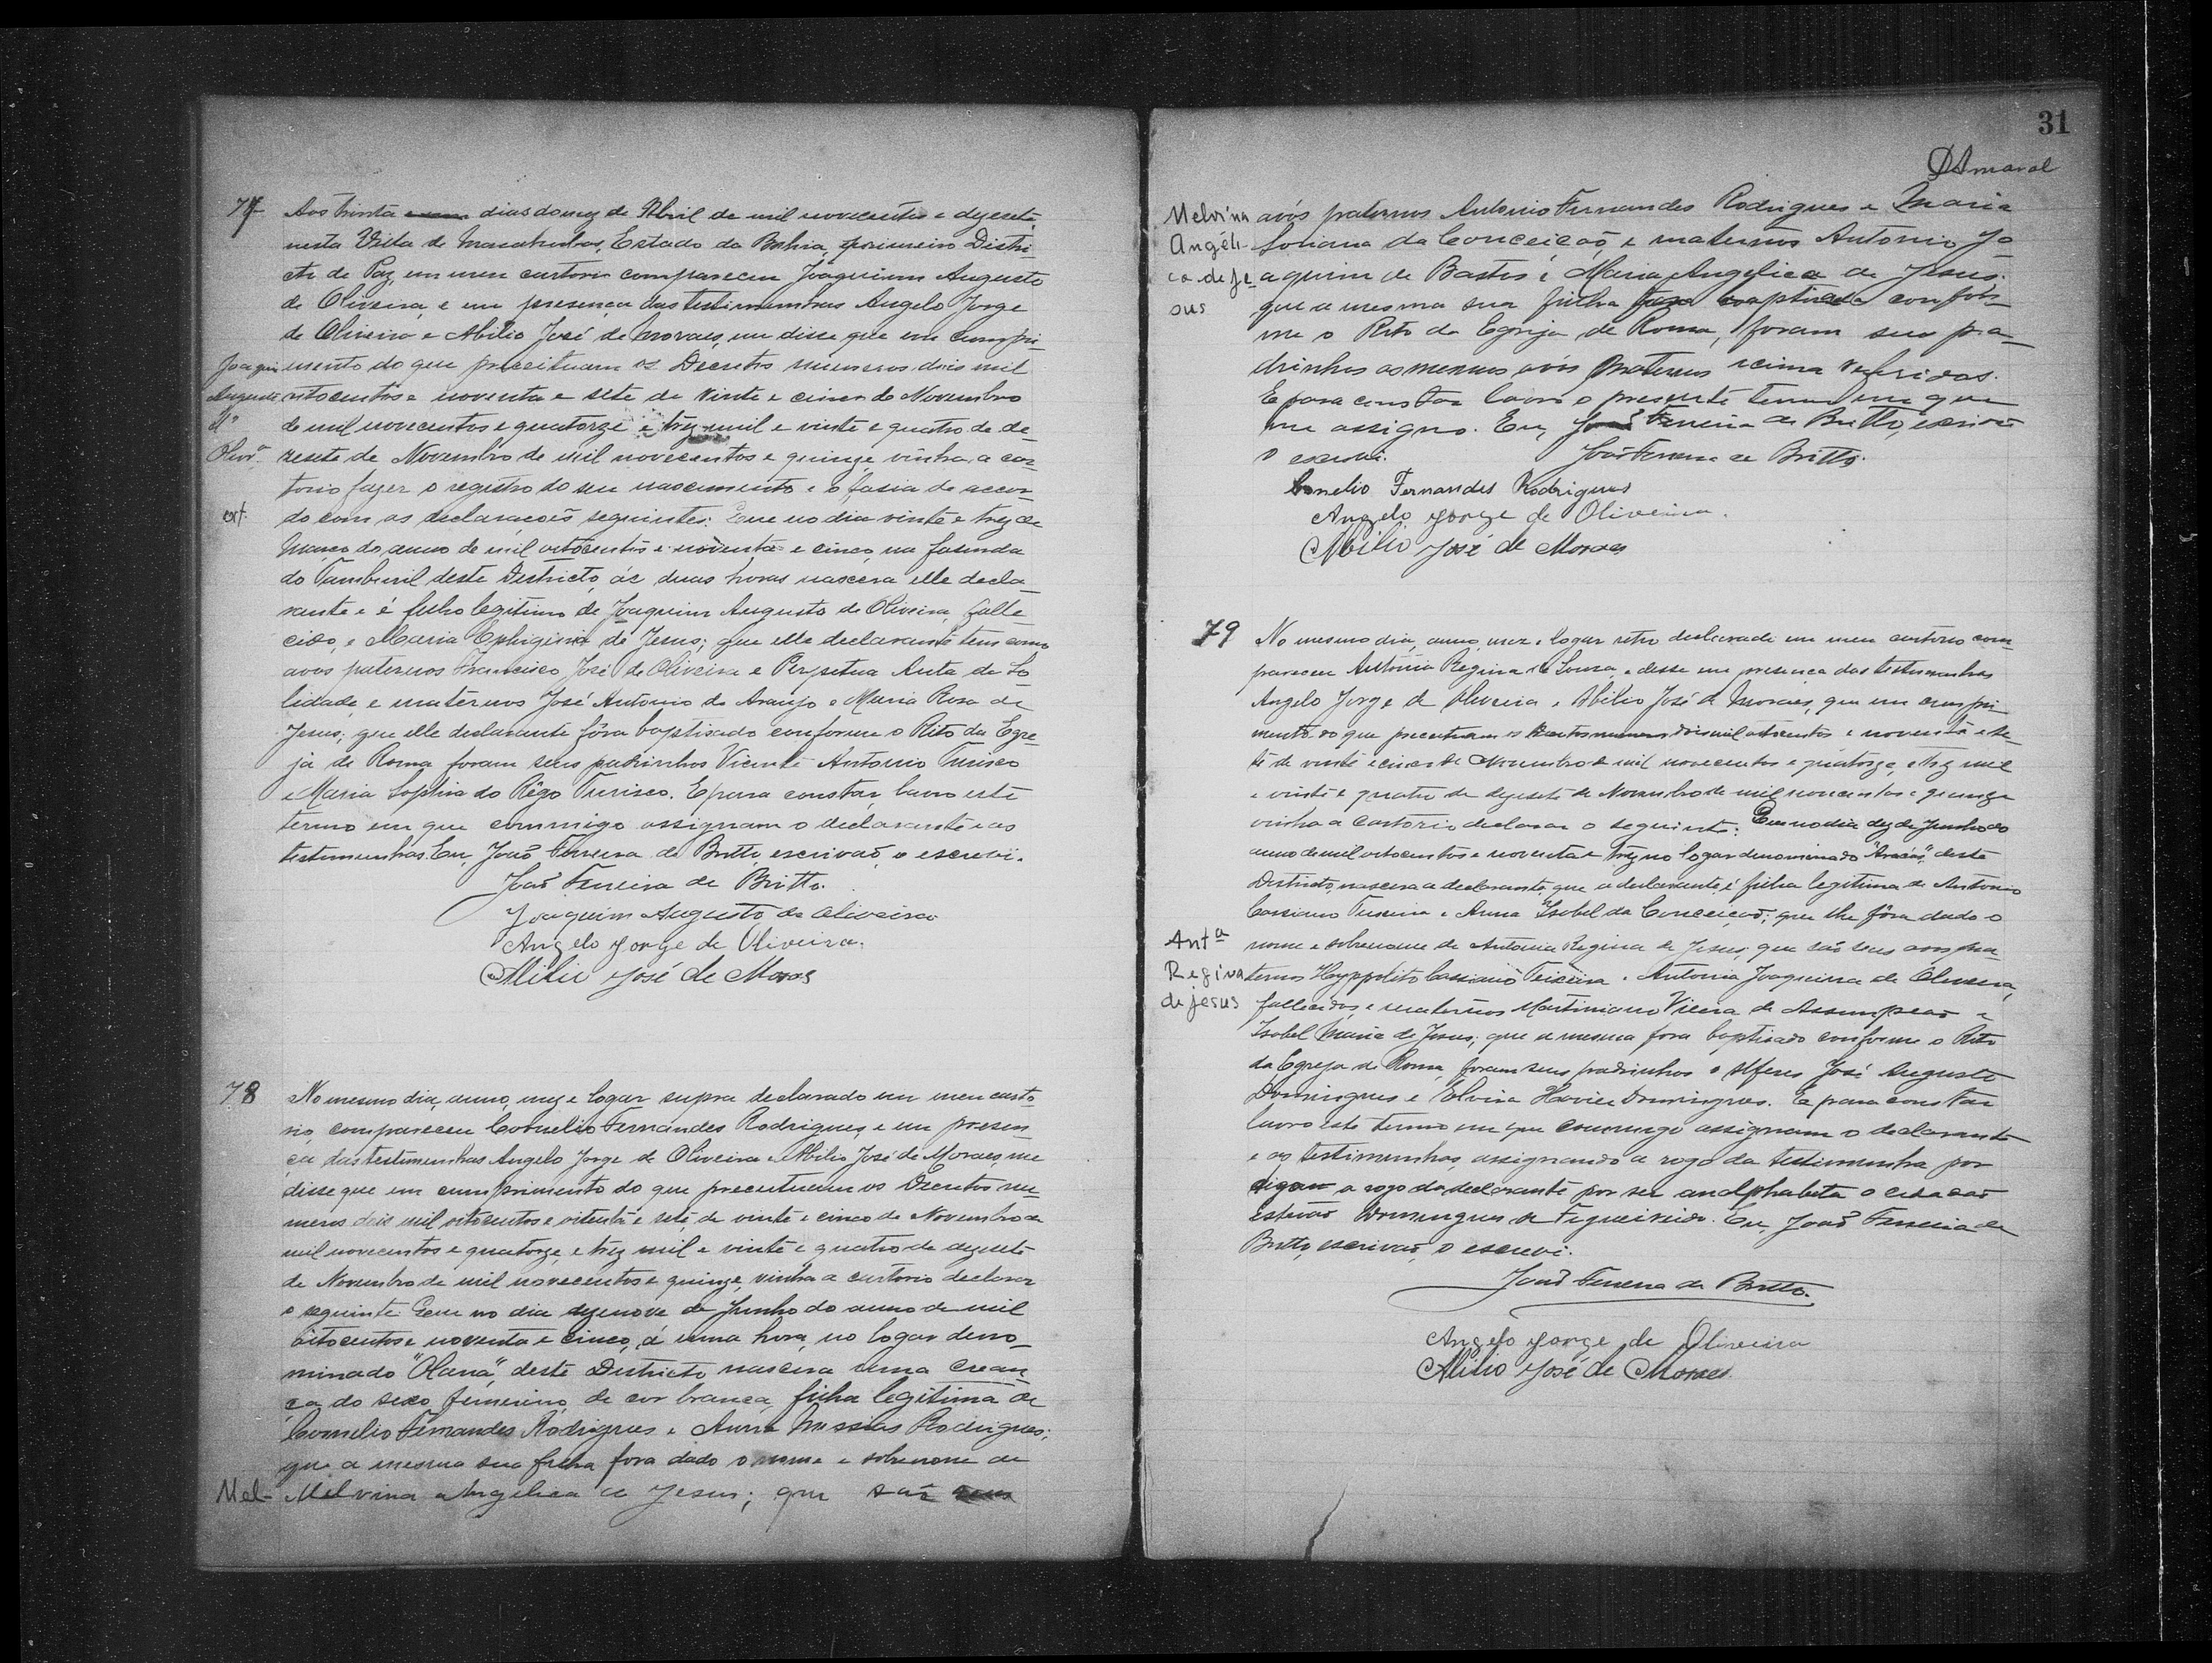 77 Aos trinta dias do mez de Abril de mil novecentos e dezesete,
nesta Villa de Macahubas, Estado da Bahia, primeiro Distri-
cto de Paz, em meu cartorio compareceu Joaquim Augusto
de Oliveira, e em presença das testimunhas Angelo Jorge
de Oliveira e Abilio José de Moraes, me disse que em cumpri-
Joaquim mento do que preceituam os Decretos numeros dois mil
Augusto oitocentos e noventa e sete de vinte e cinco de Novembro
d' de mil novecentos e quatorze e trez mil e vinte e quatro de de-
Olivª zesete de Novembro de mil novecentos e quinze, vinha a car-
torio fazer o registro do seu nascimento e o fasia de accor-
ext. do com as declarações seguintes: Que no dia vinte e trez de
Março do anno de mil oitocentos e noventa e cinco, na fasenda
do Tamburil deste Districto, ás duas horas nascera elle decla-
rante e é filho legitimo de Joaquim Augusto de Oliveira, falle-
cido, e Maria Ephigenia de Jesus; que elle declarante tem como
avós paternos Francisco José de Oliveira e Perpetua Auta da So-
lidade, e maternos José Antonio de Araujo e Maria Rosa de
Jesus; que elle declarante fôra baptisado conforme o Rito da Egre-
ja de Roma foram seus padrinhos Vicente Antonio Turisco
e Maria Sophia do Rêgo Turisco. E para constar, lavro este
termo em que commigo assignam o declarante e as
testemunhas. Eu, João Ferreira de Britto, escrivão, o escrevi.
João Ferreira de Britto.
Joaquim Augusto de Oliveira
Angelo Jorge de Oliveira.
Abilio José de Moraes
78 No mesmo dia, anno, mez e logar supra declarado em meu carto-
rio, compareceu Cornelio Fernandes Rodrigues, e em presen-
ça das testimunhas Angelo Jorge de Oliveira e Abilio José de Moraes, me
disse que em cumprimento do que preceituam os Decretos nu-
meros dois mil oitocentos e oitenta e sete, de vinte e cinco de Novembro de
mil novecentos e quatorze, e trez mil e vinte e quatro de dezesete
de Novembro de mil novecentos e quinze, vinha a cartorio declarar
o seguinte: Que no dia dezenove de Junho do anno de mil
oitocentos e noventa e cinco, á uma hora, no logar deno-
minado deste Districto nascera uma crean-
ça do sexo femenino, de cor branca, filha legitima de
Cornelio Fernandes Rodrigues e Anna Messias Rodrigues;
que a mesma sua filha fora dado o nome e sobrenome de
Mel- Melvina Angelica de Jesus; que são seus
31
DAmaral
Melvina avós paternos Antonio Fernandes Rodrigues e Maria
Angéli- Juliana da Conceição, e maternos Antonio Jo-
ca de Je- aquim de Bastos e Maria Angelica de Jesus.
sus que a mesma sua filha fora baptisada confor-
me o Rito da Egreja de Roma, foram seus pa-
drinhos os mesmos avós maternos acima referidos.
E para constar lavro o presente termo em que
me assigno. Eu, João Ferreira de Britto, escrivão
o escrevi. João Ferreira de Britto.
Cornelio Fernandes Rodrigues
Angelo Jorge de Oliveira.
Abilio José de Moraes
79 No mesmo dia, anno, mez e logar retro declarado em meu cartorio com-
pareceu Antonia Regina de Souza, e disse em presença das testimunhas
Angelo Jorge de Oliveira e Abilio José de Moraes, que em cumpri-
mento do que preceituam os Decretos numeros dois mil oitocentos e noventa e se-
te de vinte e cinco de Novembro de mil novecentos e quatorze, e trez mil
e vinte e quatro de dezesete de Novembro de mil novecentos e quinze
vinha a cartorio declarar o seguinte: Que no dia dez de Junho do
anno de mil oitocentos e noventa e trez no logar denominado deste
Districto nascera a declarante, que a declarante é filha legitima de Antonio
Cassiano Teixeira e Anna Isabel da Conceição; que lhe fôra dado o
Antª nome e sobrenome de Antonia Regina de Jesus, que são seus avós pa-
Regina ternos Hyppolito Cassiano Teixeira e Antonia Joaquina de Oliveira,
de Jesus fallecidos, e maternos Martiniano Vieira de Assumpção e
Isabel Maria de Jesus; que a mesma fora baptisada conforme o Rito
da Egreja de Roma, foram seus padrinhos o Alferes José Augusto
Domingues e Elvira Xavier Domingues. E para constar
lavro este termo em que commigo assignam o declarante
e as testimunhas, assignando a rogo da testimunha por
digo a rogo da declarante por ser analphabeta o cidadão
Estevão Domingues de Figueiredo. Eu, João Ferreira de
Britto, escrivão, o escrevi.
João Ferreira de Britto.
Angelo Jorge de Oliveira
Abilio José de Moraes